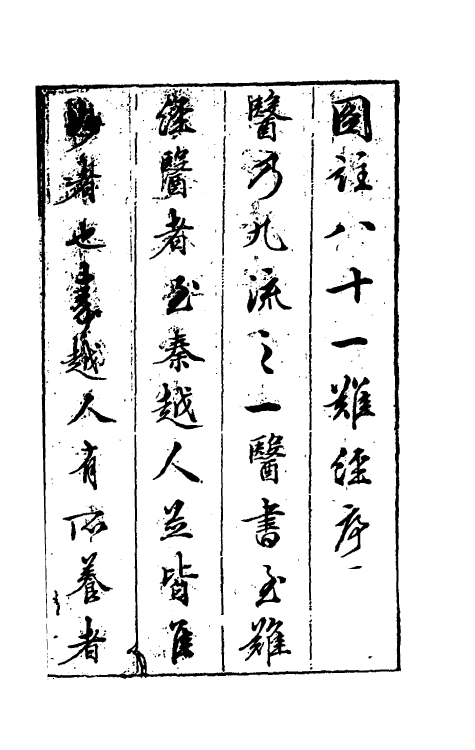 圖註八十一難經序
醫乃九流之一醫書至難
經醫者至秦越人並皆
也秦越人有所養者